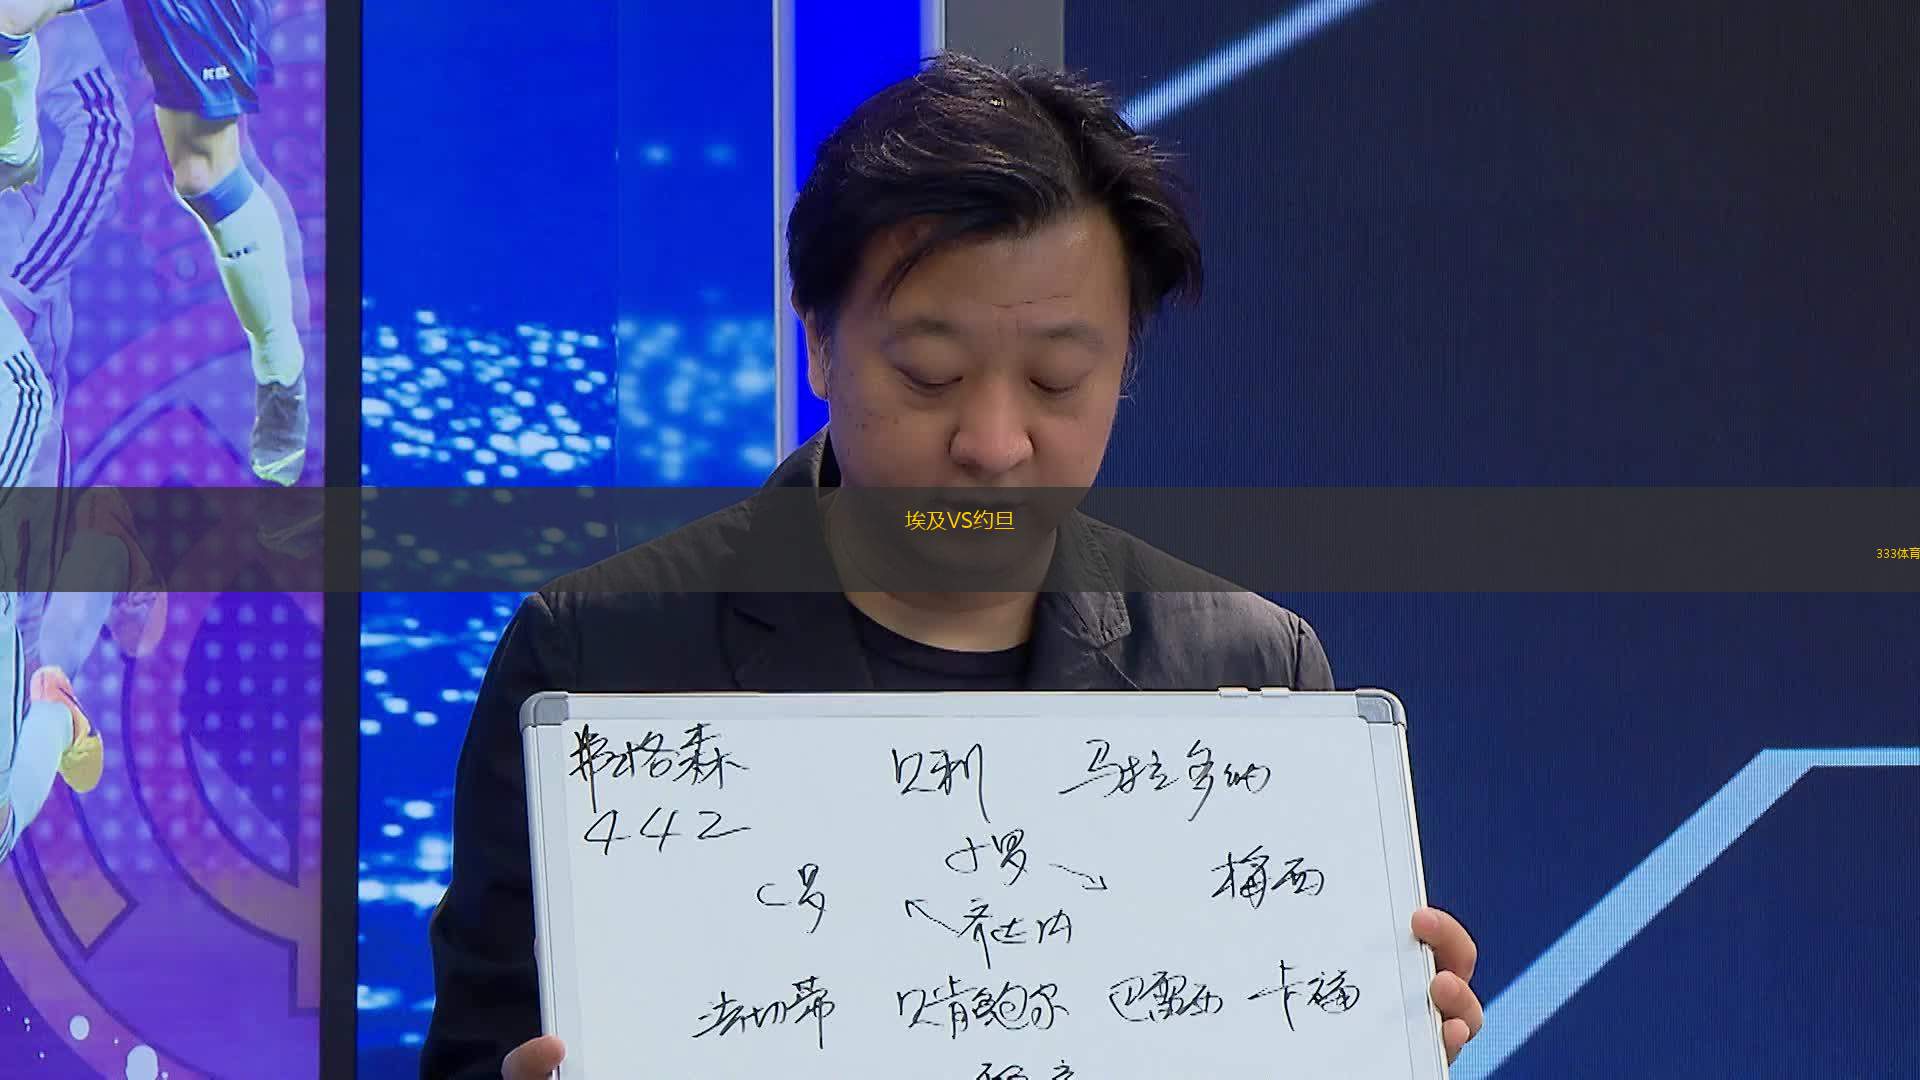 埃及VS约旦
333体育
弗格森 贝利 马拉多纳
442
小罗
C罗 梅西
齐达内
法切蒂 贝肯鲍尔 巴雷西 卡福